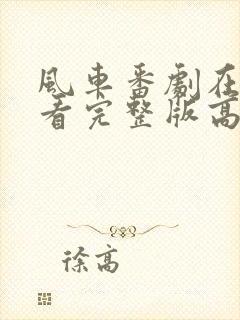 風車番劇在
看完整版高
徐高